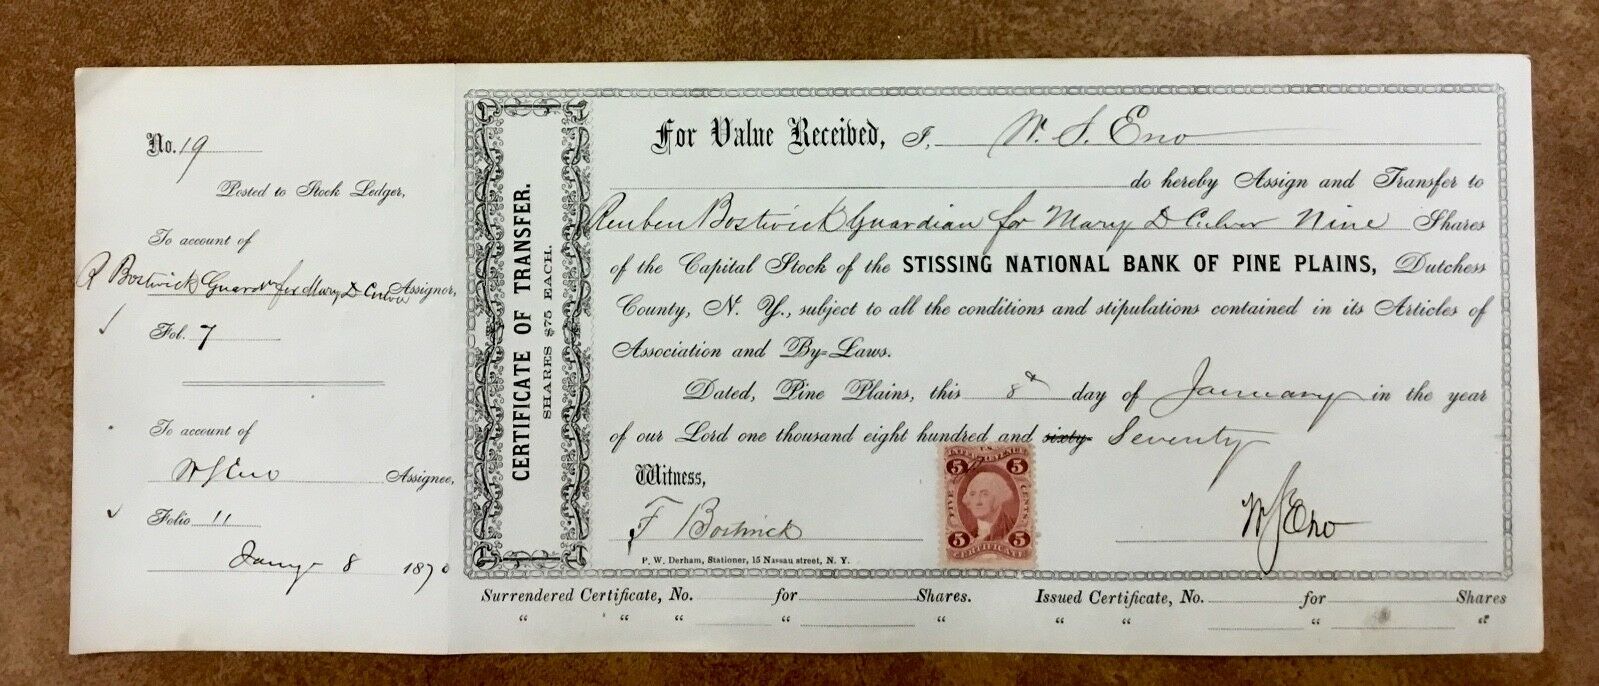 No. 19
Posted to Stock Ledger,
To account of
R Bostwick Guardn for Mary D Culver Assignor,
Fol. 7
To account of
W S Eno Assignee,
Folio 11
Jany 8 1870
CERTIFICATE OF TRANSFER.
SHARES $75 EACH.
For Value Received, I, W. S. Eno
do hereby Assign and Transfer to
Reuben Bostwick Guardian for Mary D Culver Nine Shares
of the Capital Stock of the STISSING NATIONAL BANK OF PINE PLAINS, Dutchess
County, N. Y., subject to all the conditions and stipulations contained in its Articles of
Association and By-Laws.
Dated, Pine Plains, this 8d day of January in the year
of our Lord one thousand eight hundred and sixty Seventy
Witness,
F Bostwick
W S Eno
U.S.
INTER. REVENUE
5 5
FIVE CENTS
5 5
CERTIFICATE
P. W. Derham, Stationer, 15 Nassau street, N. Y.
Surrendered Certificate, No. for Shares. Issued Certificate, No. for Shares
“ “ “ “ “ “ “ “ “